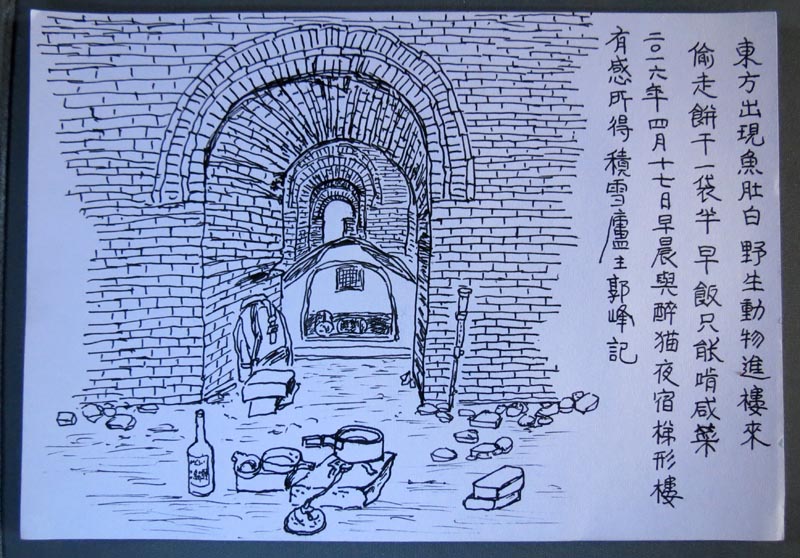 東方出現魚肚白 野生動物進樓來
偷走餅干一袋半 早飯只能啃咸菜
二〇一六年四月十七日早晨與醉猫夜宿梯形樓
有感所得 積雪廬主郭峰記